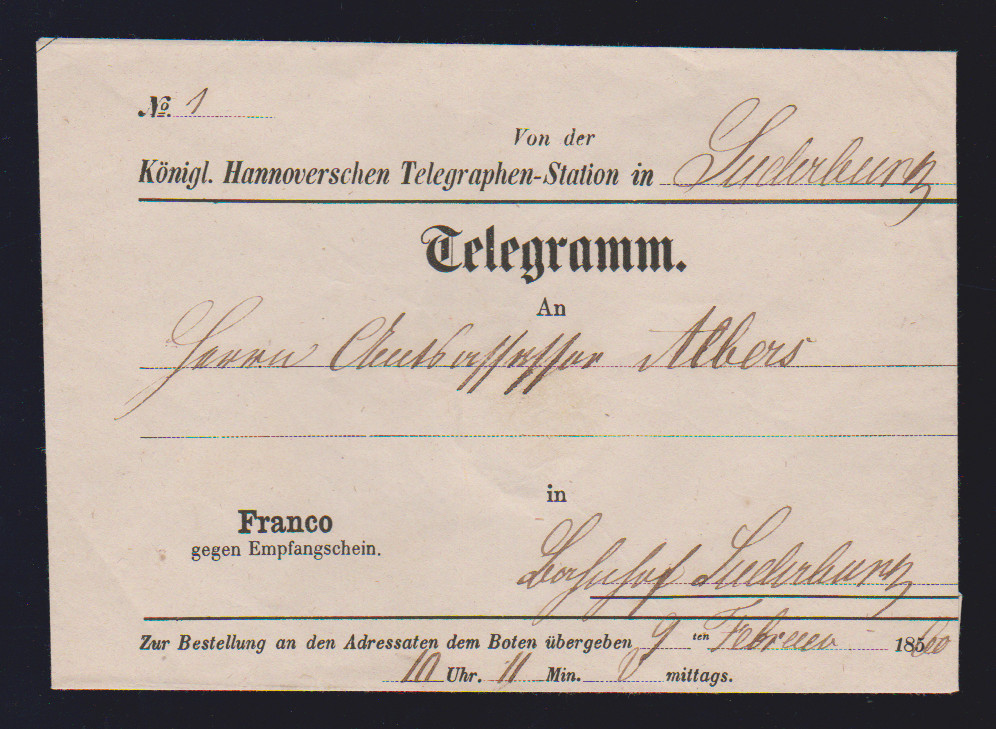 No. 1
Von der
Königl. Hannoverschen Telegraphen-Station in Suderburg
Telegramm.
An
Herrn Amtsassessor Albers
in
Franco
gegen Empfangschein.
Bahnhof Suderburg
Zur Bestellung an den Adressaten dem Boten übergeben 9 ten Februar 1860
10 Uhr. 11 Min. mittags.